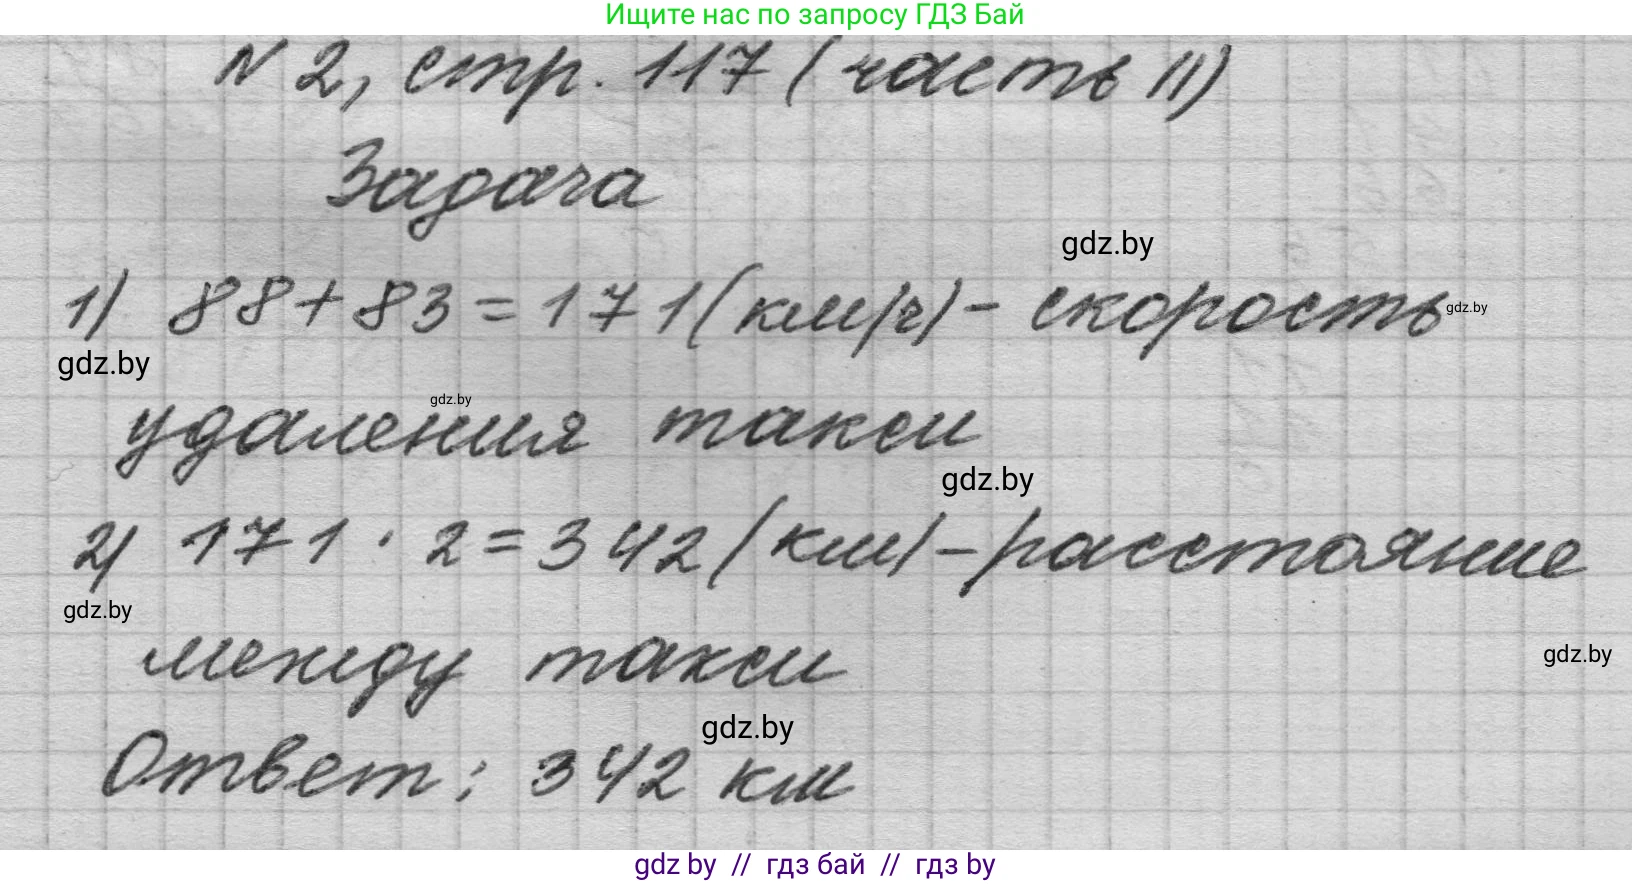 Ищите нас по запросу ГДЗ Бай
N 2, стр. 117 (часть II)
Задача
gdz.by
1) 88+83=171(км/ч)- скорость
gdz.by
gdz.by
gdz.by
удаления такси
gdz.by
2) 171 · 2=342(км)-расстояние
gdz.by
между такси
gdz.by
gdz.by
Ответ: 342 км
gdz by // гдз бай // гдз by